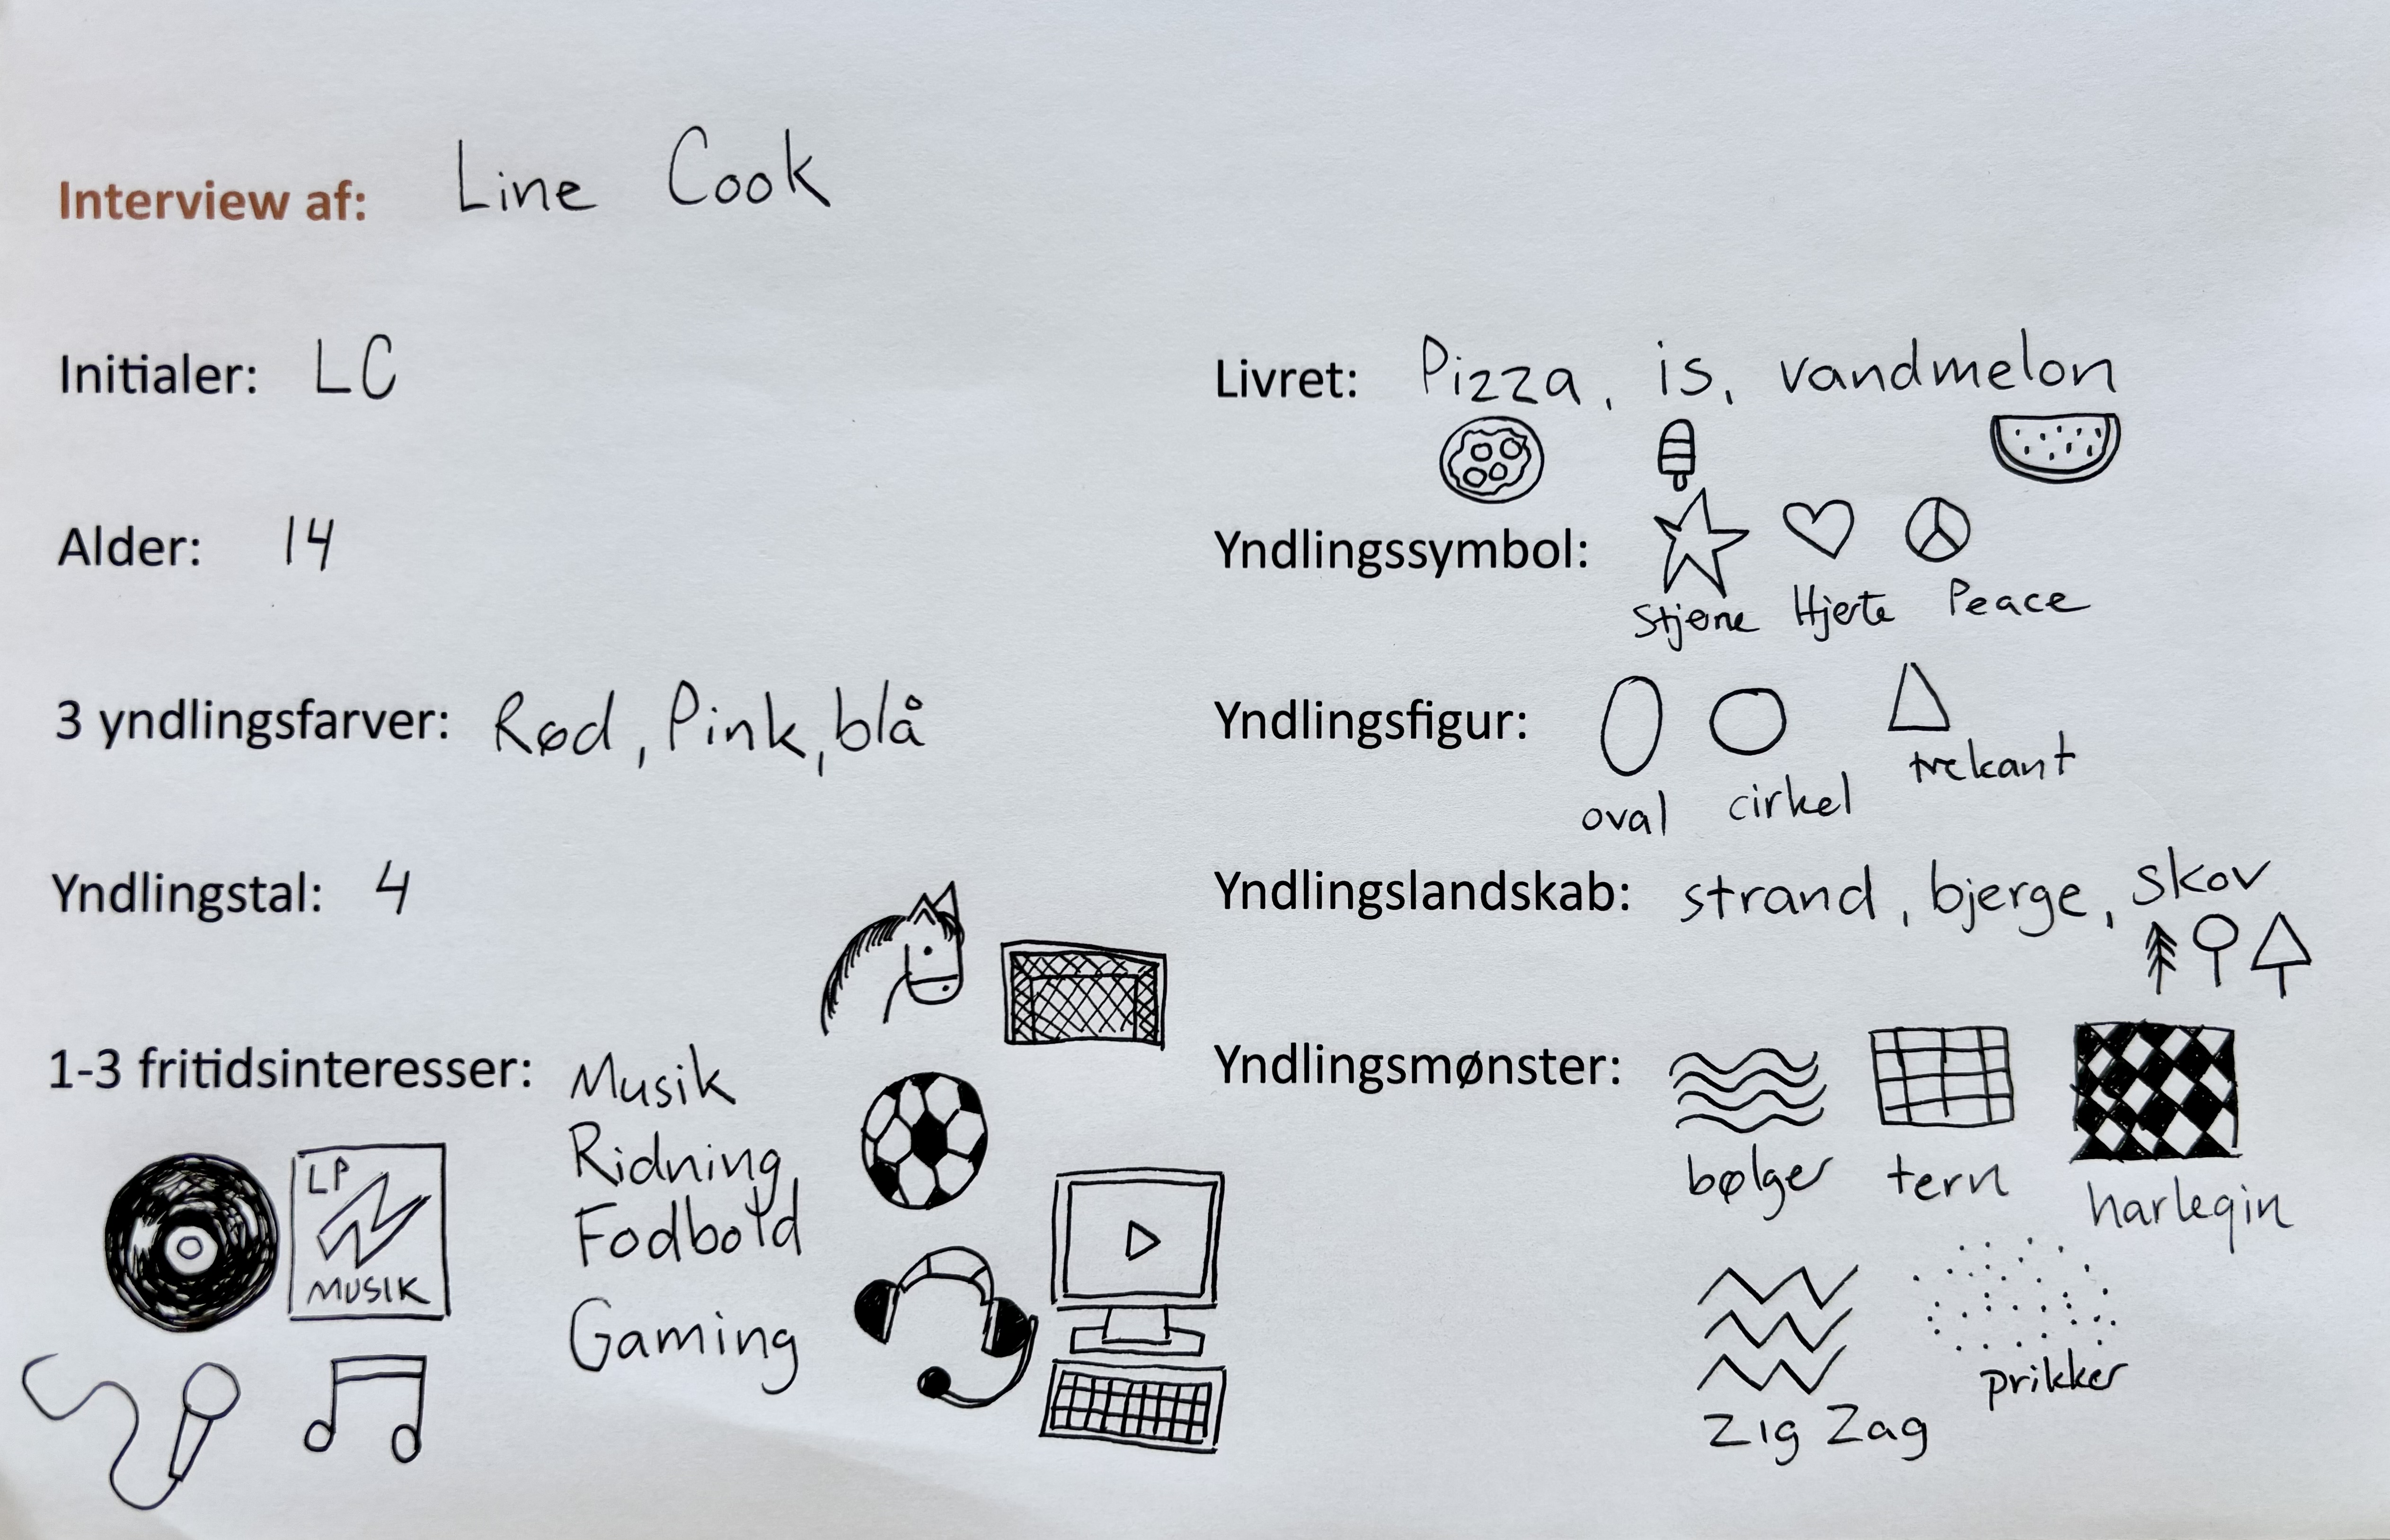 Interview af: Line Cook
Initialer: LC
Alder: 14
3 yndlingsfarver: Rød, Pink, blå
Yndlingstal: 4
1-3 fritidsinteresser: Musik
Ridning
Fodbold
Gaming
LP
MUSIK
Livret: Pizza, is, vandmelon
Yndlingssymbol:
Stjerne Hjerte Peace
Yndlingsfigur:
oval cirkel trekant
Yndlingslandskab: strand, bjerge, skov
Yndlingsmønster:
bølger tern harleqin
Zig Zag prikker